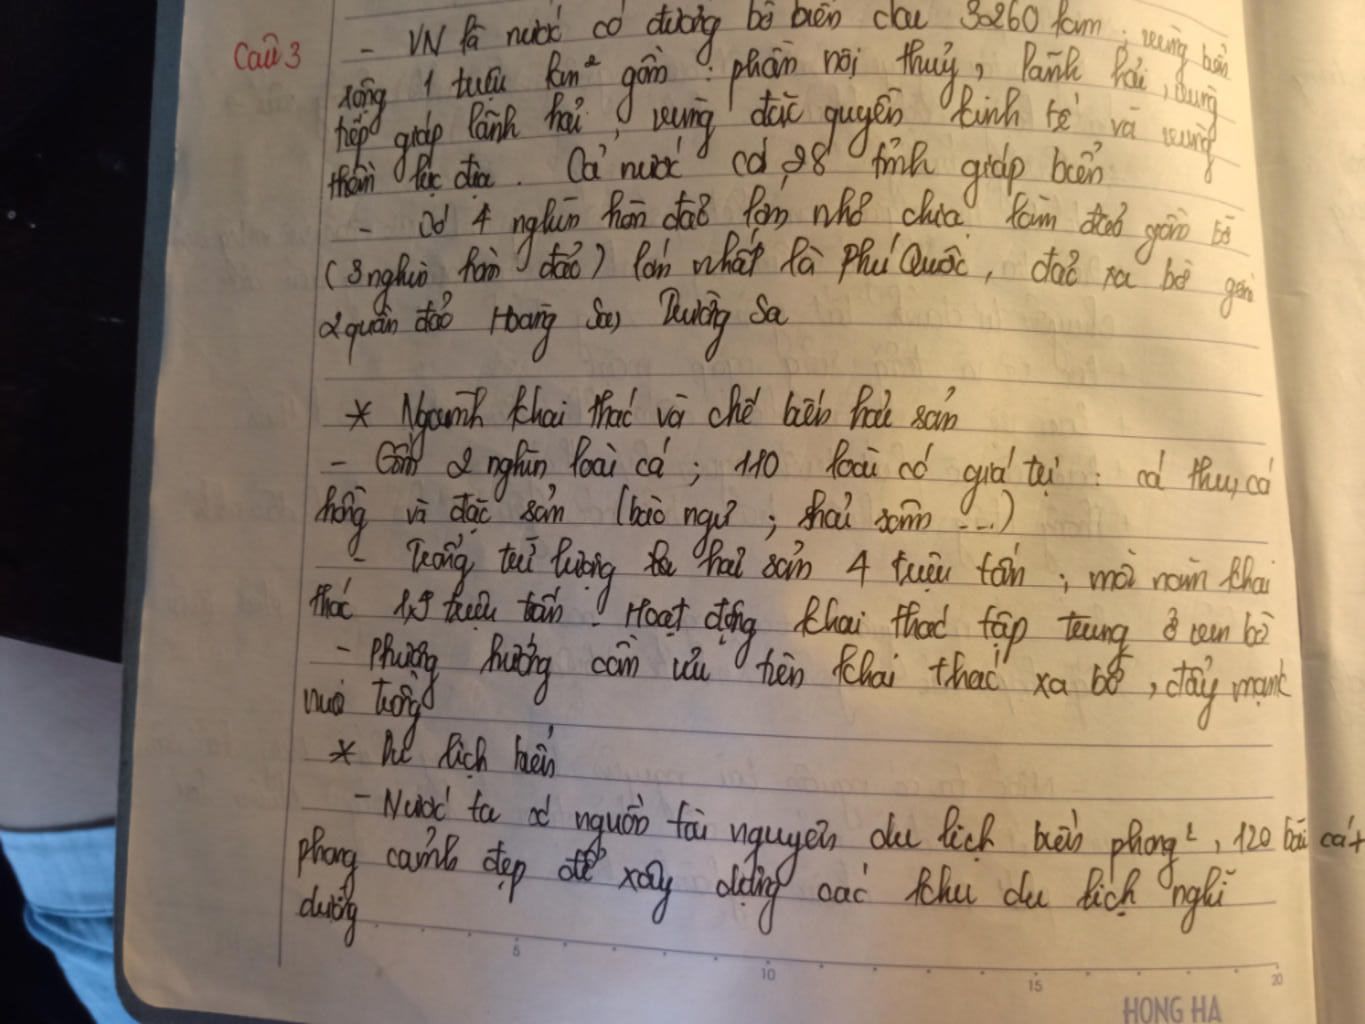 Câu 3
- VN là nước có đường bờ biển dài 3260 km, vùng biển
rộng 1 triệu km² gồm: phần nội thuỷ, lãnh hải, vùng
tiếp giáp lãnh hải, vùng đặc quyền kinh tế và vùng
thềm lục địa. Cả nước có 28 tỉnh giáp biển
- Có 4 nghìn hòn đảo lớn nhỏ chia làm đảo gần bờ
(3 nghìn hòn đảo) lớn nhất là Phú Quốc, đảo xa bờ gồm
2 quần đảo Hoàng Sa, Trường Sa
* Ngành khai thác và chế biến hải sản
- Gồm 2 nghìn loài cá; 110 loài có giá trị: cá thu, cá
hồng và đặc sản (bào ngư; hải sâm ...)
- Tổng trữ lượng hải sản 4 triệu tấn; mỗi năm khai
thác 1,9 triệu tấn. Hoạt động khai thác tập trung ở ven bờ
- Phương hướng cần ưu tiên khai thác xa bờ, đẩy mạnh
nuôi trồng
* Du lịch biển
- Nước ta có nguồn tài nguyên du lịch biển phong², 120 bãi cát
phong cảnh đẹp để xây dựng các khu du lịch nghỉ
dưỡng
5
10
15
20
HONG HA